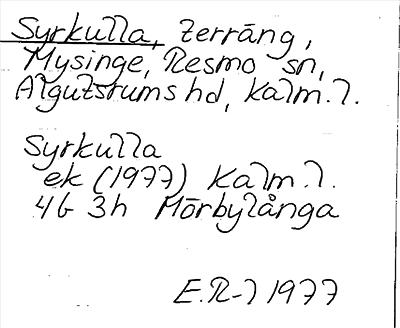 Syrkulla, terräng,
Mysinge, Resmo sn,
Algutsrums hd, Kalm. l.
Syrkulla
ek (1977) Kalm. l.
4G 3h Mörbylånga
E.R-l 1977